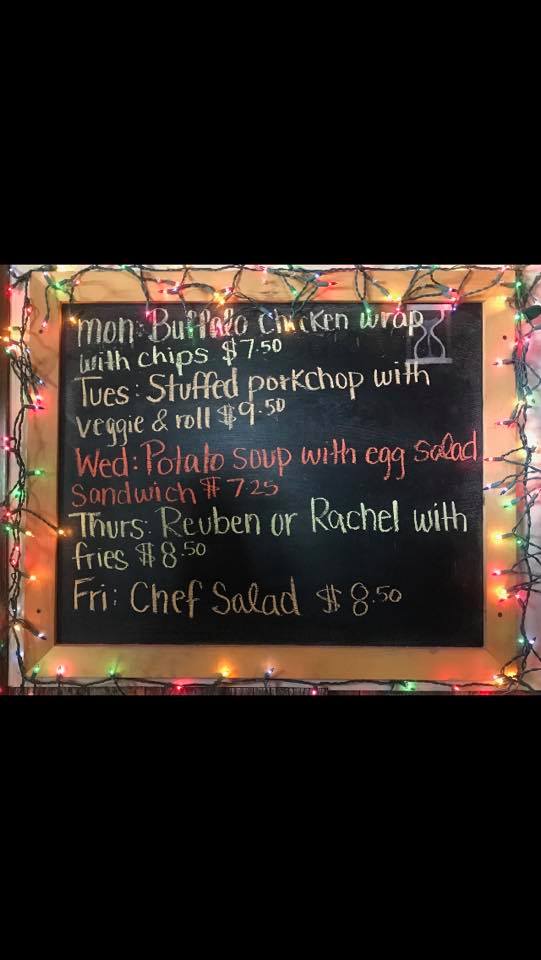 Mon: Buffalo Chicken wrap
with chips $7.50
Tues: Stuffed porkchop with
veggie & roll $9.50
Wed: Potato soup with egg salad
sandwich $7.25
Thurs: Reuben or Rachel with
fries $8.50
Fri: Chef Salad $8.50